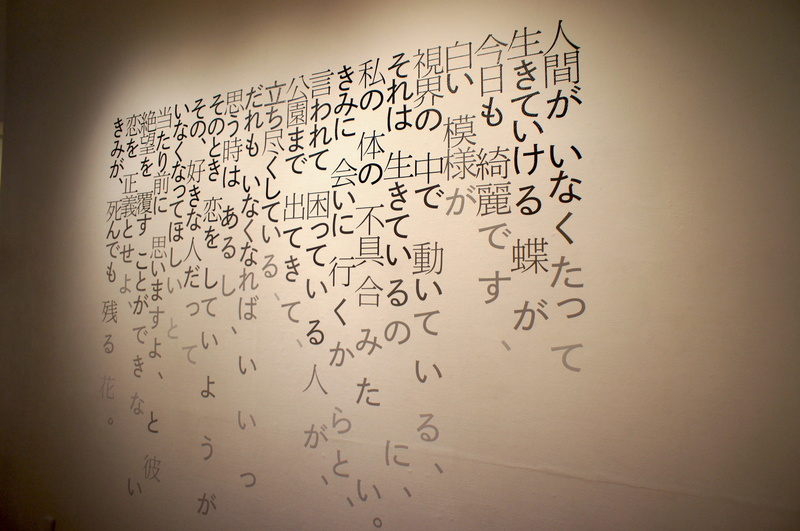 人間が いなくたって
生きていける 蝶が
今日も 綺麗です、
白い 模様が
視界の 中で 動いている、
それは 生きているのに、
私の 体の 不具合みたい。
きみに 会いに 行くからと、
言われて 困っている人が、
公園まで 出てきて、
立ち尽くしている、
だれも いなくなれば いいっ
思う時は あるし、
そのとき 恋を していようが
その、好きな 人だって
いなくなってほしいと
当たり前に 思いますよ、と 彼
絶望を 覆す ことができない
恋を 正義とせよ、
きみが、死んでも 残る 花。